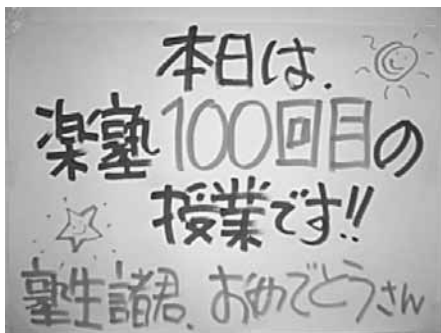 本日は、
楽塾100回目の
授業です!!
塾生諸君、おめでとうさん